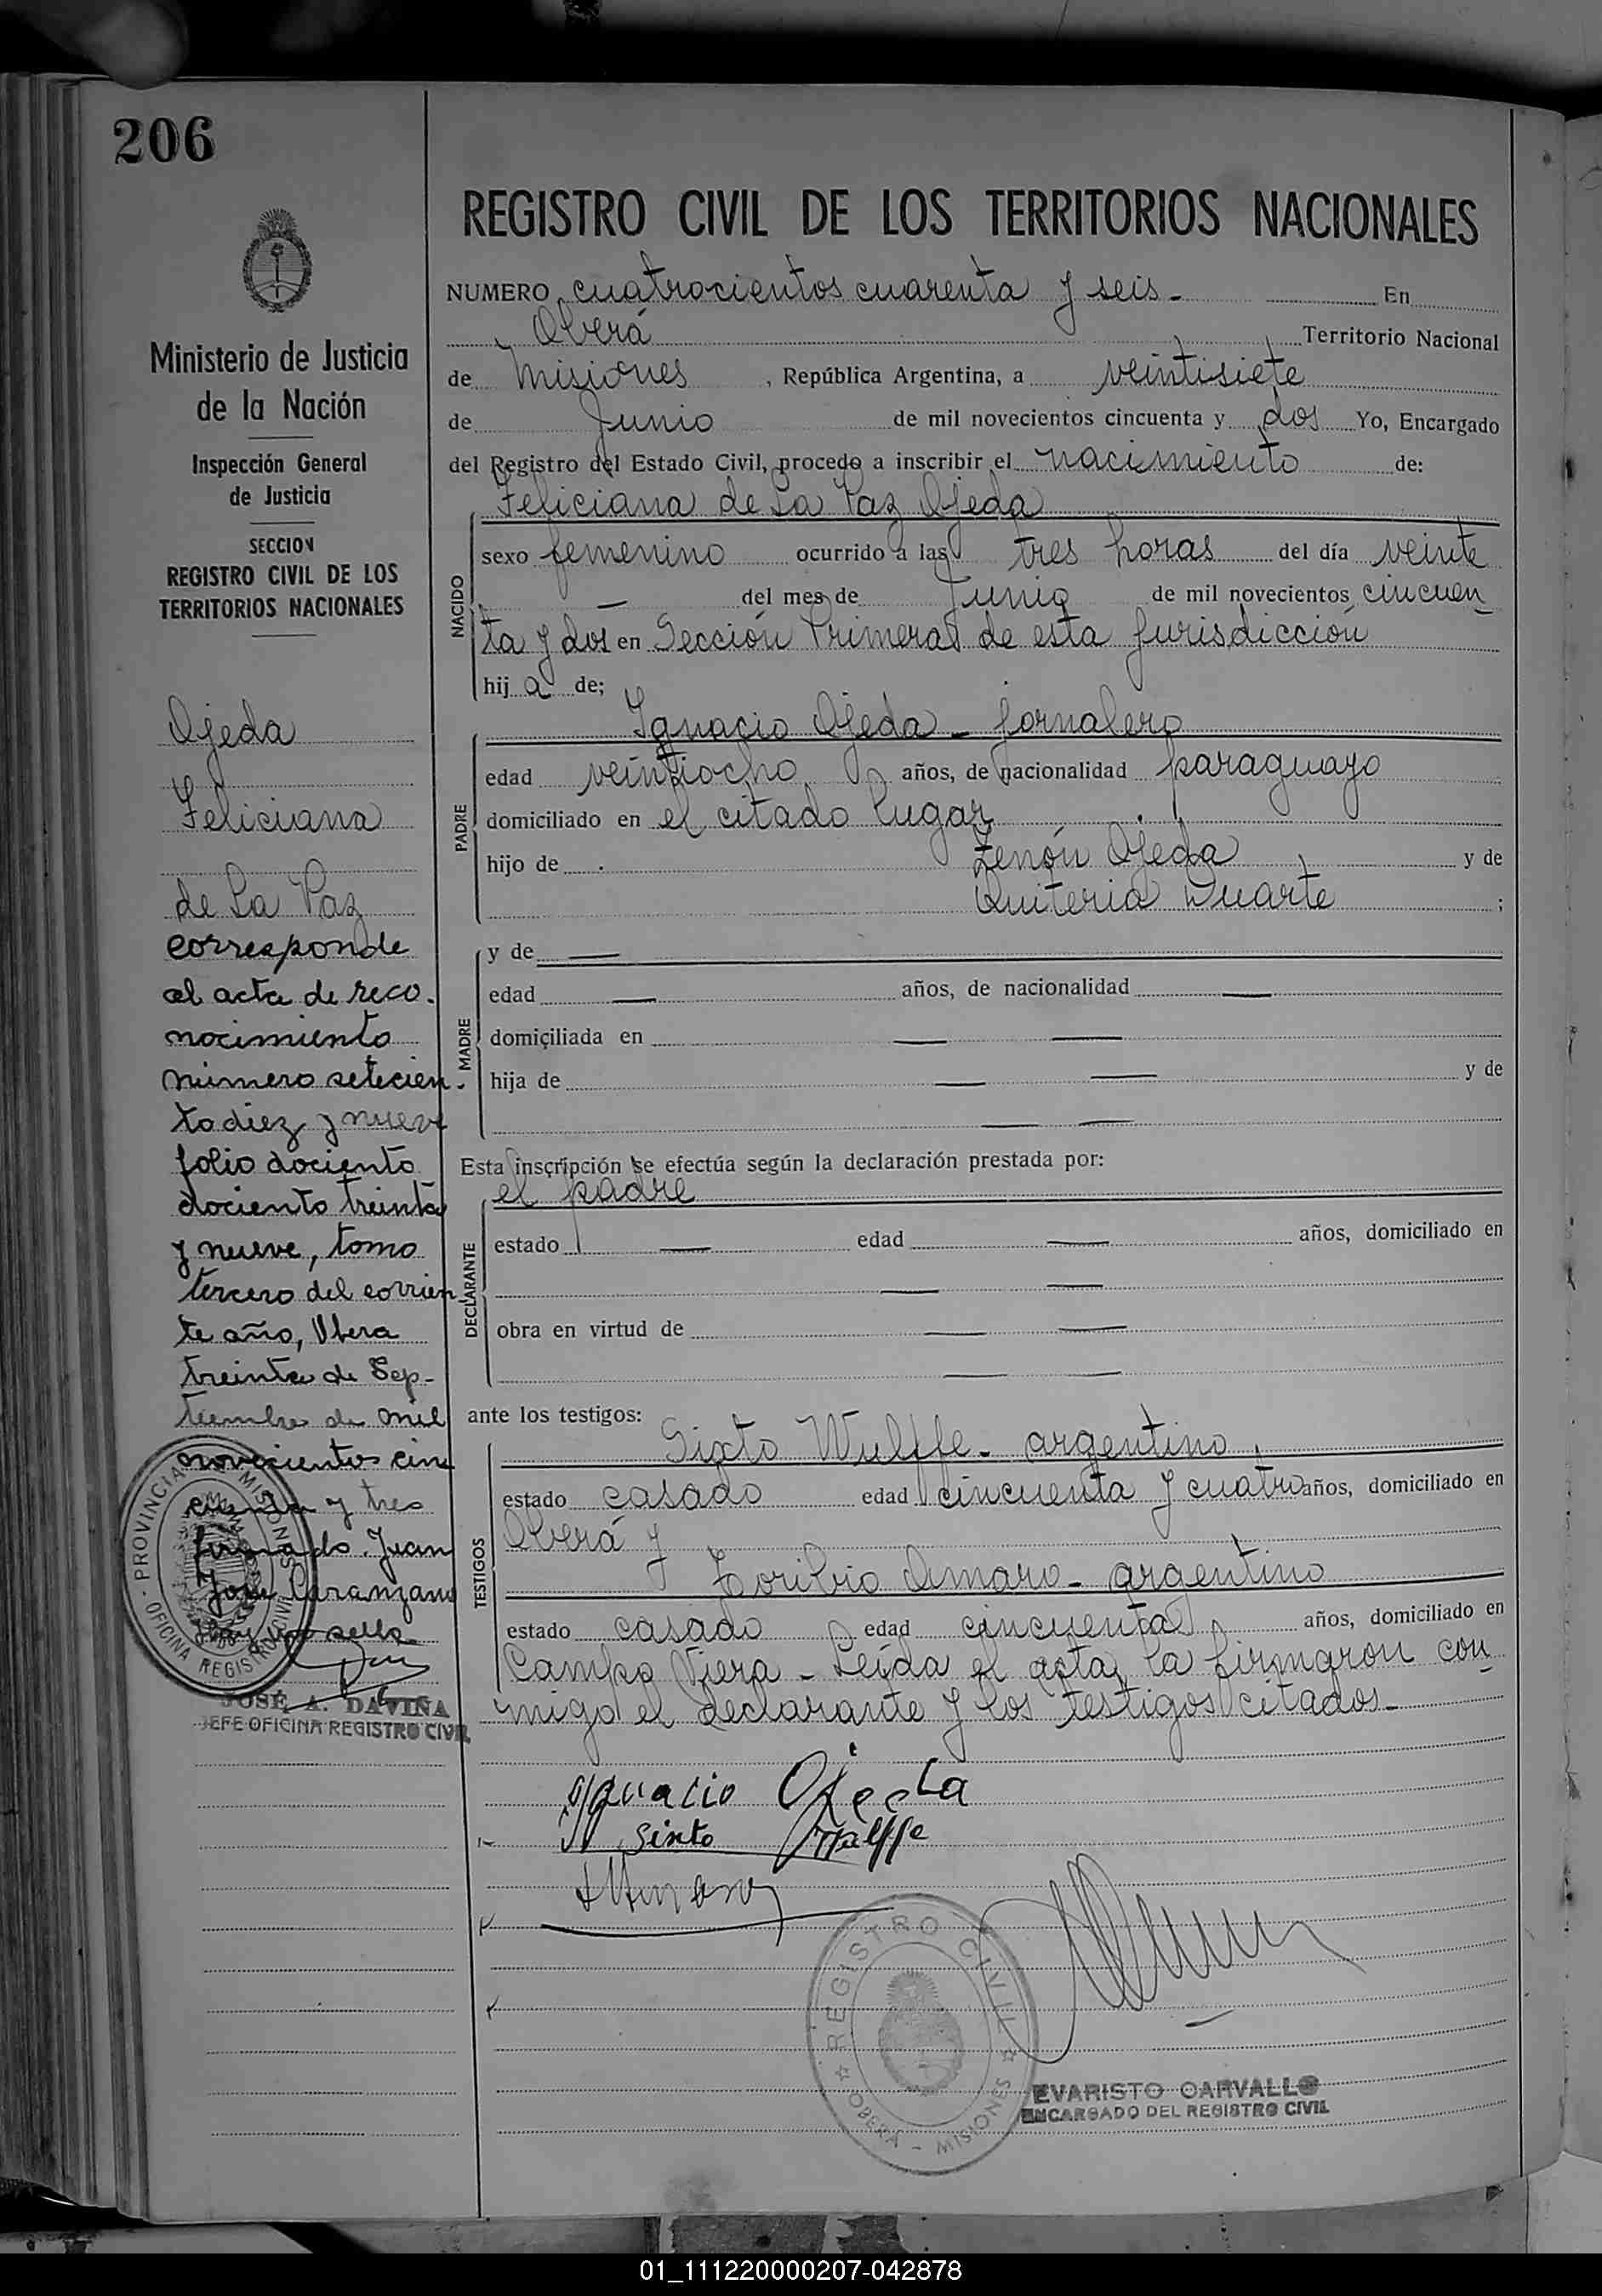 206
Ministerio de Justicia
de la Nación
Inspección General
de Justicia
SECCION
REGISTRO CIVIL DE LOS
TERRITORIOS NACIONALES
Ojeda
Feliciana
de La Paz
corresponde
al acta de reco-
nocimiento
número setecien-
to diez y nueve
folio dociento
dociento treinta
y nueve, tomo
tercero del corrien
te año, Obera
treinta de Sep-
tiembre de mil
novecientos cin
cuenta y tres
firmado. Juan
Jose
Hay un sello
PROVINCIA MISIONES
OFICINA REGISTRO CIVIL
JOSÉ A. DAVIÑA
JEFE OFICINA REGISTRO CIVIL
REGISTRO CIVIL DE LOS TERRITORIOS NACIONALES
NUMERO cuatrocientos cuarenta y seis - En
Oberá Territorio Nacional
de Misiones , República Argentina, a veintisiete
de Junio de mil novecientos cincuenta y dos Yo, Encargado
del Registro del Estado Civil, procedo a inscribir el nacimiento de:
Feliciana de La Paz Ojeda
NACIDO
sexo femenino ocurrido a las tres horas del día veinte
— del mes de Junio de mil novecientos cincuen
ta y dos en Sección Primera de esta jurisdicción
hij a de;
PADRE
Ignacio Ojeda - jornalero
edad veintiocho años, de nacionalidad paraguayo
domiciliado en el citado lugar
hijo de Zenón Ojeda y de
Quiteria Duarte ;
MADRE
y de —
edad — años, de nacionalidad —
domiciliada en — —
hija de — — y de
— —
Esta inscripción se efectúa según la declaración prestada por:
el padre
DECLARANTE
estado — edad — años, domiciliado en
— —
obra en virtud de — —
— —
ante los testigos:
TESTIGOS
Sixto Wulffe - argentino
estado casado edad cincuenta y cuatro años, domiciliado en
Oberá y
Toribio Amaro - argentino
estado casado edad cincuenta años, domiciliado en
Campo Viera - Leída el acta, la firmaron con
migo el declarante y los testigos citados.
Ignacio Ojeda
Sixto Wulffe
REGISTRO CIVIL
OBERÁ - MISIONES
EVARISTO CARVALLO
ENCARGADO DEL REGISTRO CIVIL
01_111220000207-042878